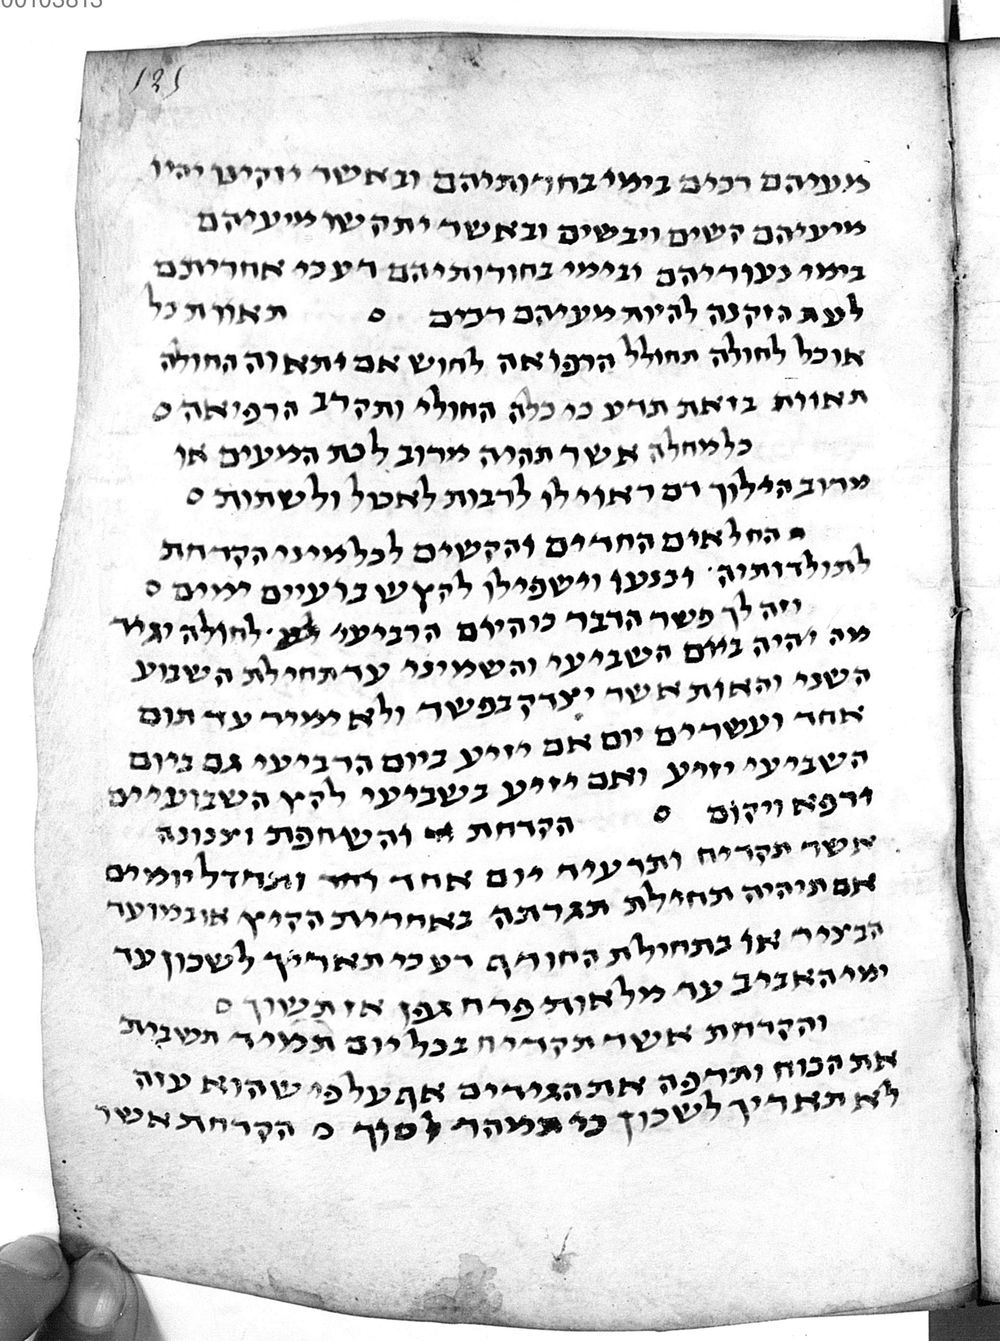 00103813
121
מעיהם רכים בימי בחרותיהם ובאשר יזקינו יהיו
מיעיהם קשים ויבשים ובאשר יתקשו מיעיהם
בימי נעוריהם ובימי בחורותיהם דע כי אחריתם
לעת הזקנה להיות מעיהם רכים ס תאוות כל
אוכל לחולה תחולל הרפואה לחוש אם יתאוה החולה
תאוות בזאת תדע כי כלה החולי ותקרב הרפואה ס
כל מחלה אשר תהיה מרוב לכת המעים או
מרוב הילוך דם ראוי לו לרבות לאכול ולשתות ס
החלאים החדים והקשים לכל מיני הקדחת
לתולדותיה ובנעו וישפילו לקץ שבועיים ימים ס
וזה לך פשר הדבר כי היום הרביעי לחולה יגיד
מה יהיה ביום השביעי והשמיני עד תחילת השבוע
השני והאות אשר יצדק בפשר ולא ימיר עד תום
אחד ועשרים יום אם יזיע ביום הרביעי גם ביום
השביעי יזיע ואם יזיע בשביעי לקץ השבועיים
ירפא ויקום ס הקדחת והשחפת וצנונה
אשר תקדיח ותרעיד יום אחד ותחדל יומים
אם תיהיה תחילת תגרתה באחרית הקיץ או במועד
הבציר או בתחילת החורף דע כי תאריך לשכון עד
ימי האביב עד מלאות פרח גפן אז תשוך ס
והקדחת אשר תקדיח בכל יום תמיד תשבית
את הכוח ותרפה את הגידים אף על פי שהוא עזה
לא תאריך לשכון כי תמהר לסוך ס הקדחת אשר